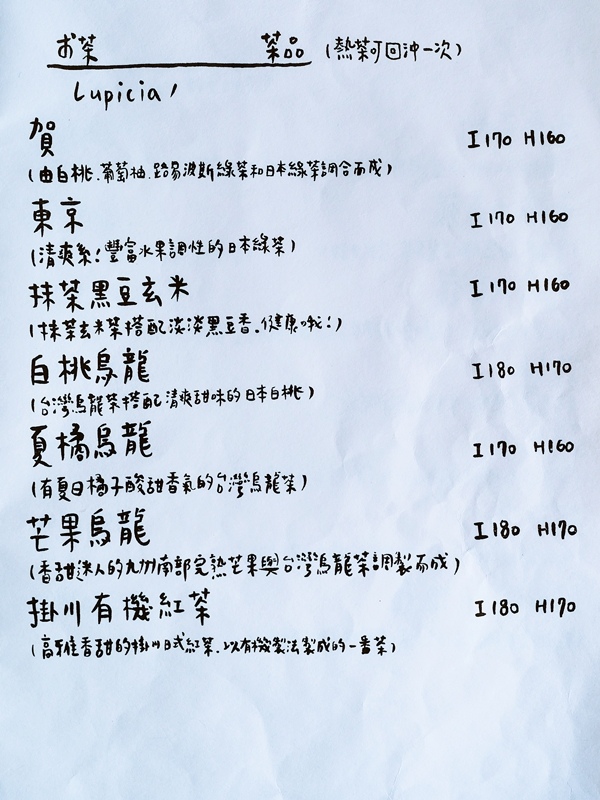 お茶 茶品 (熱茶可回沖一次)
Lupicia!
賀 I170 H160
(由白桃.葡萄柚.路易波斯綠茶和日本綠茶調合而成)
東京 I170 H160
(清爽系!豐富水果調性的日本綠茶)
抹茶黑豆玄米 I170 H160
(抹茶玄米茶搭配淡淡黑豆香.健康哦!)
白桃烏龍 I180 H170
(台灣烏龍茶搭配清爽甜味的日本白桃)
夏橘烏龍 I170 H160
(有夏日橘子酸甜香氣的台灣烏龍茶)
芒果烏龍 I180 H170
(香甜迷人的九州南部完熟芒果與台灣烏龍茶調製而成)
掛川有機紅茶 I180 H170
(高雅香甜的掛川日式紅茶.以有機製法製成的一番茶)